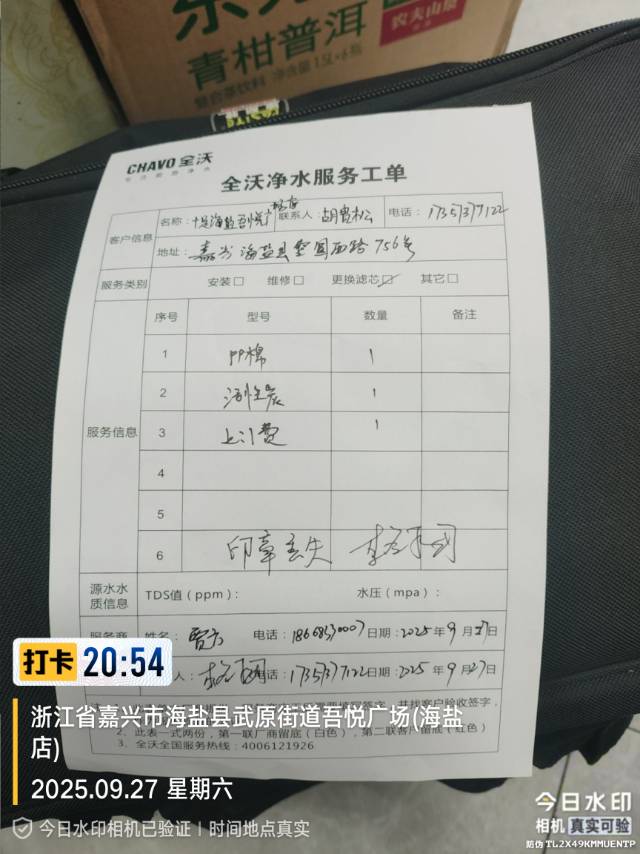 青柑普洱
复合茶饮料 净含量 1.5L×6瓶
农夫山泉
CHAVO 全沃
全沃净水服务工单
客户信息
名称：海盐吾悦广场店 联系人：胡 松 电话：17357377122
地址：嘉兴海盐县 西路756号
服务类别 安装□ 维修□ 更换滤芯☑ 其它□
服务信息
序号 型号 数量 备注
1 PP棉 1
2 活性炭 1
3 上门费 1
4
5
6 印章丢失
源水水质信息 TDS值（ppm）： 水压（mpa）：
服务商 姓名： 电话：18668370007 日期：2025年9月27日
人： 电话：17357377122 日期：2025年9月27日
签字，并找客户验收签字，
2、此表一式两份，第一联厂商留底（白色），第二联客户留底（红色）
3、全沃全国服务热线：4006121926
打卡 20:54
浙江省嘉兴市海盐县武原街道吾悦广场(海盐
店)
2025.09.27 星期六
今日水印相机已验证 | 时间地点真实
今日水印
相机 真实可验
防伪 TL2X49KMMUENTP